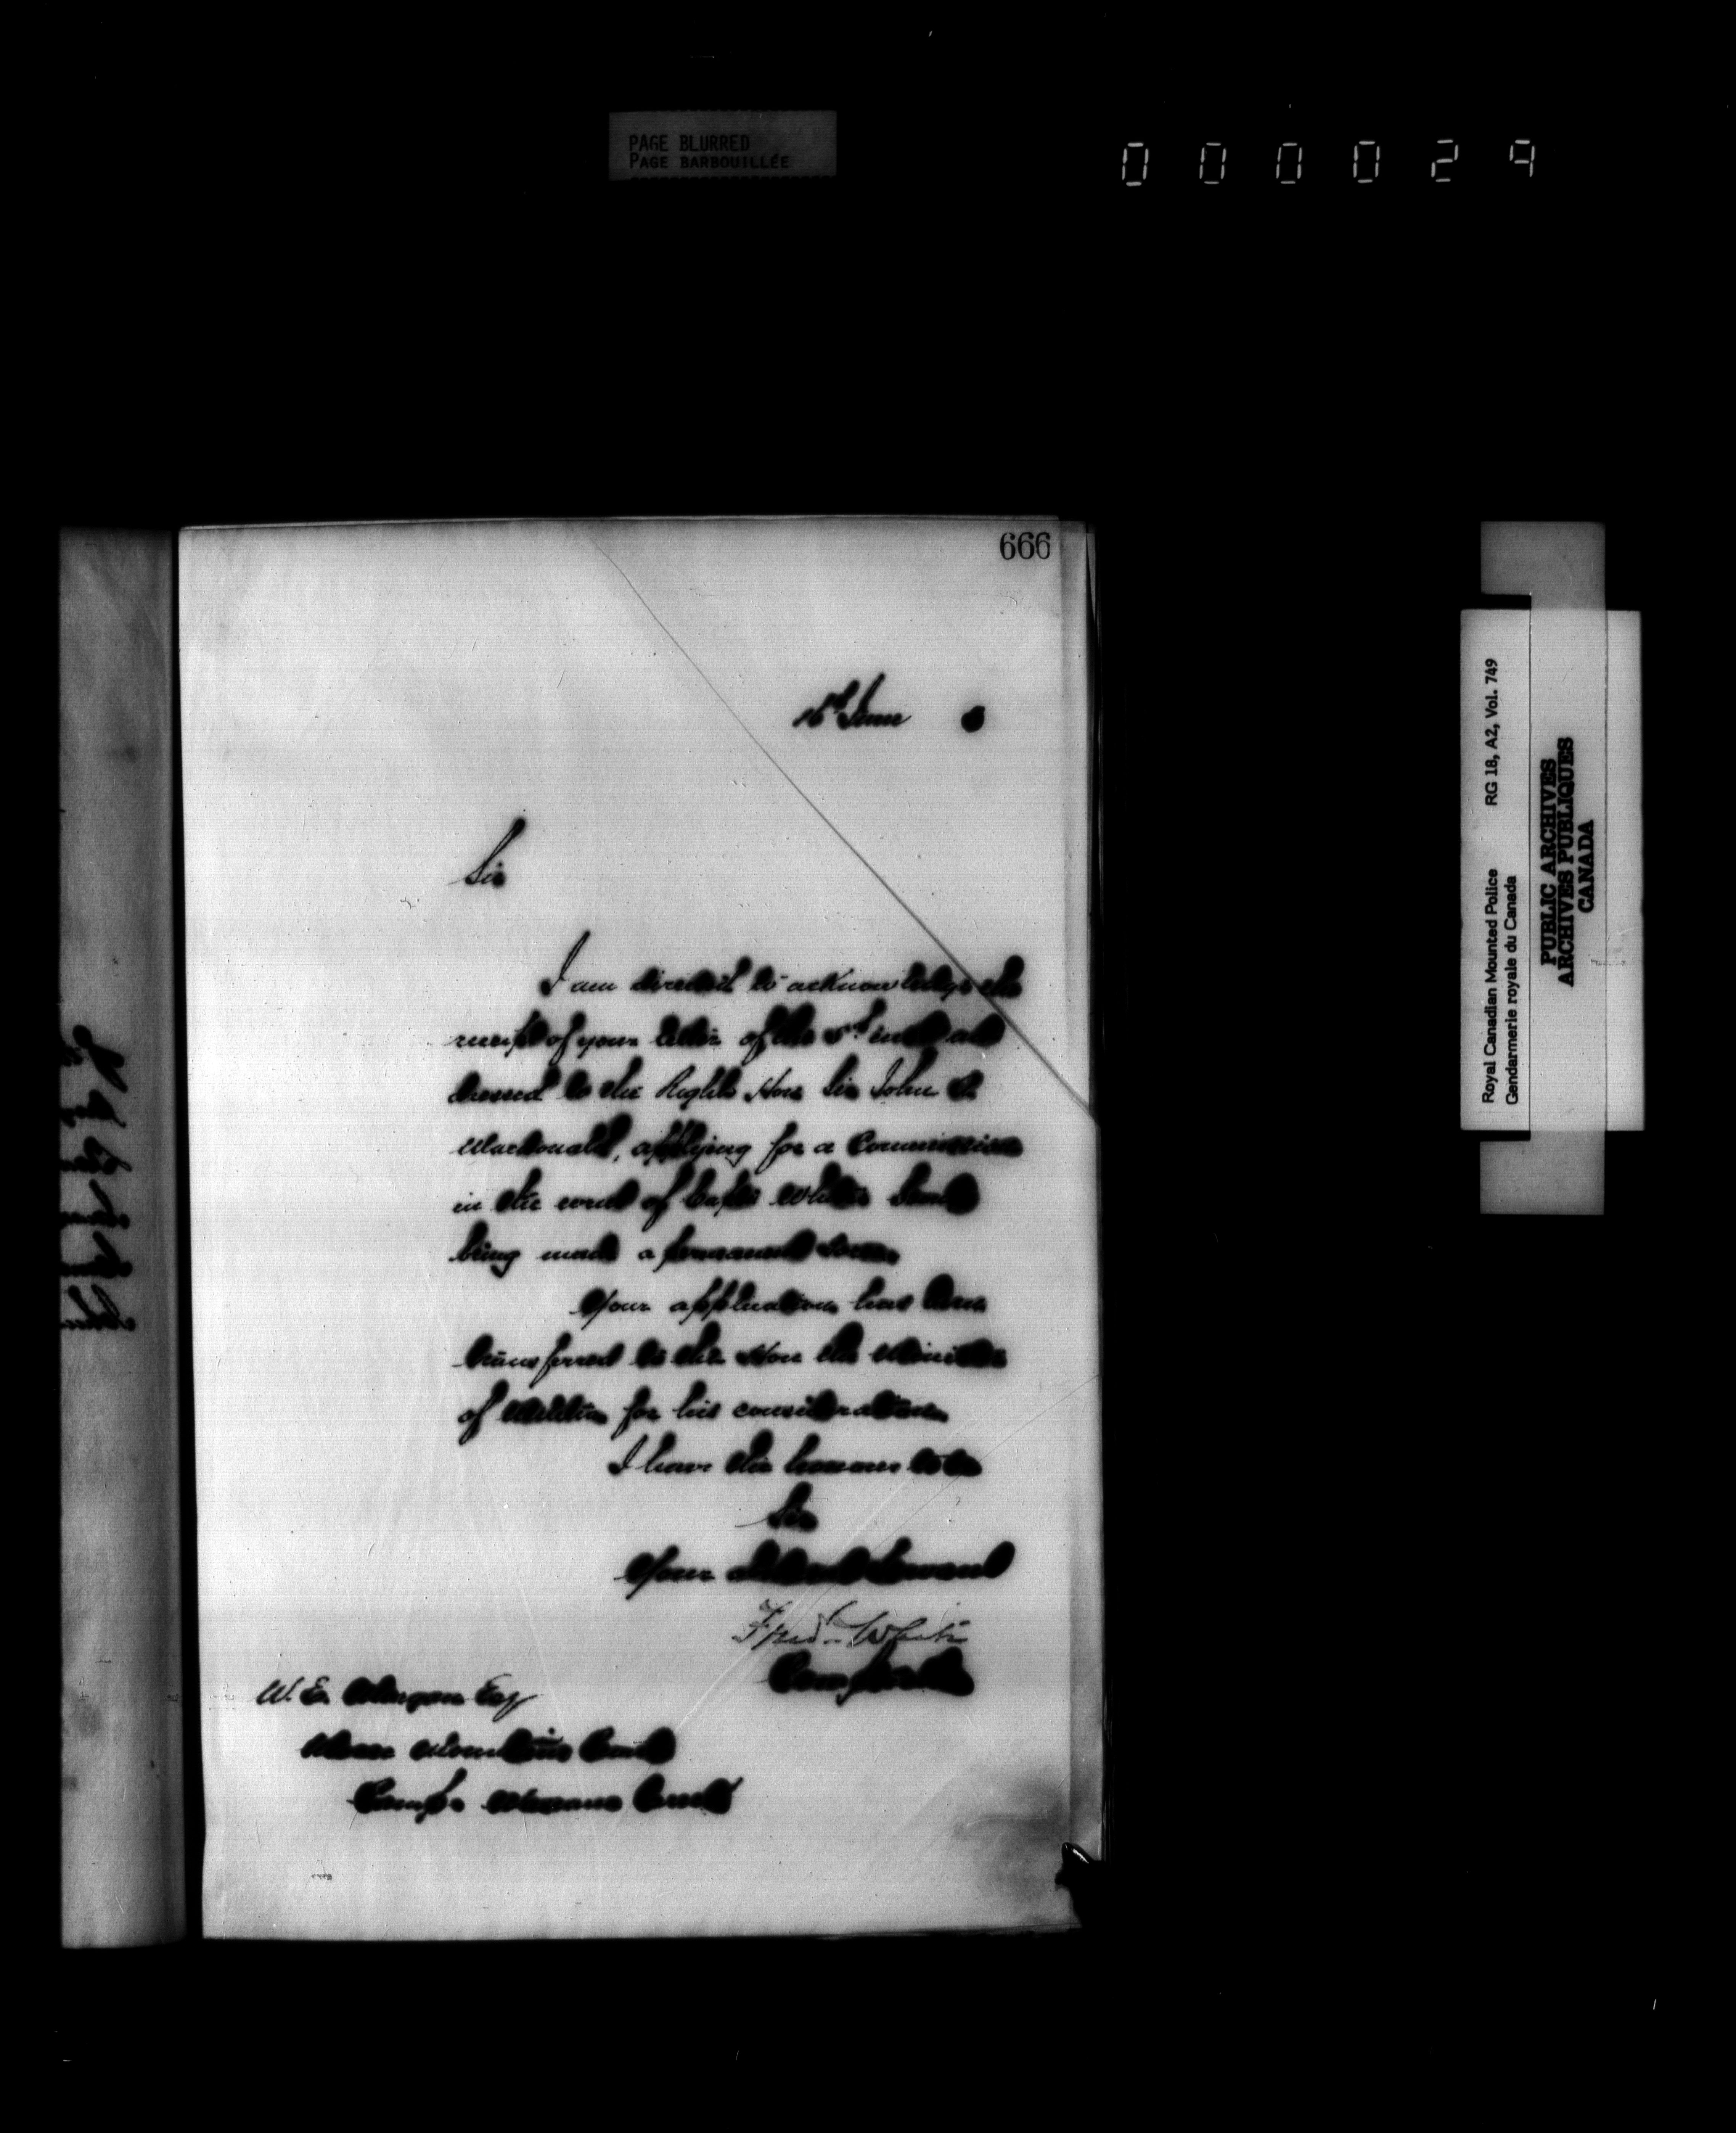 PAGE BLURRED
PAGE BARBOUILLÉE
000029
666
16th June
Sir
I am directed to acknowledge the
receipt of your letter of the 5th inst ad
dressed to the Right Hon Sir John A.
Macdonald, applying for a Commission
in the event of Capt White's
being made a permanent
Your application has been
transferred to the Hon the Minister
of Militia for his consideration
I have the honour to be
Sir
Your obedient Servant
Fred White
Comptroller
W. E. Esq
Moose Mountain
Camp Creek
Royal Canadian Mounted Police RG 18, A2, Vol. 749
Gendarmerie royale du Canada
PUBLIC ARCHIVES
ARCHIVES PUBLIQUES
CANADA